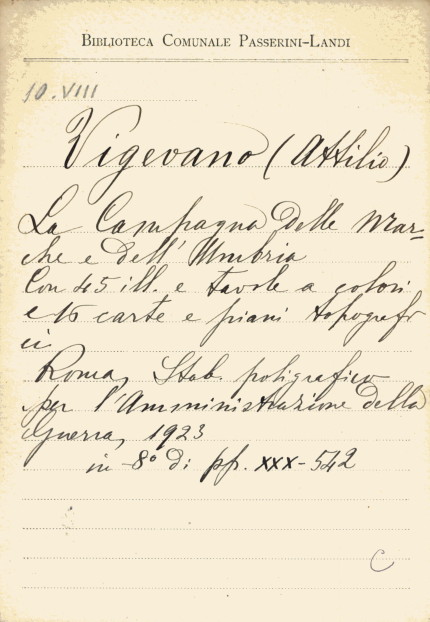 BIBLIOTECA COMUNALE PASSERINI-LANDI
10.VIII
Vigevano (Attilio)
La Campagna delle Mar-
che e dell'Umbria
Con 45 ill. e tavole a colori
e 16 carte e piani topografi
ci
Roma, Stab. poligrafico
per l'Amministrazione della
Guerra, 1923
in-8° di pp. XXX-542
C